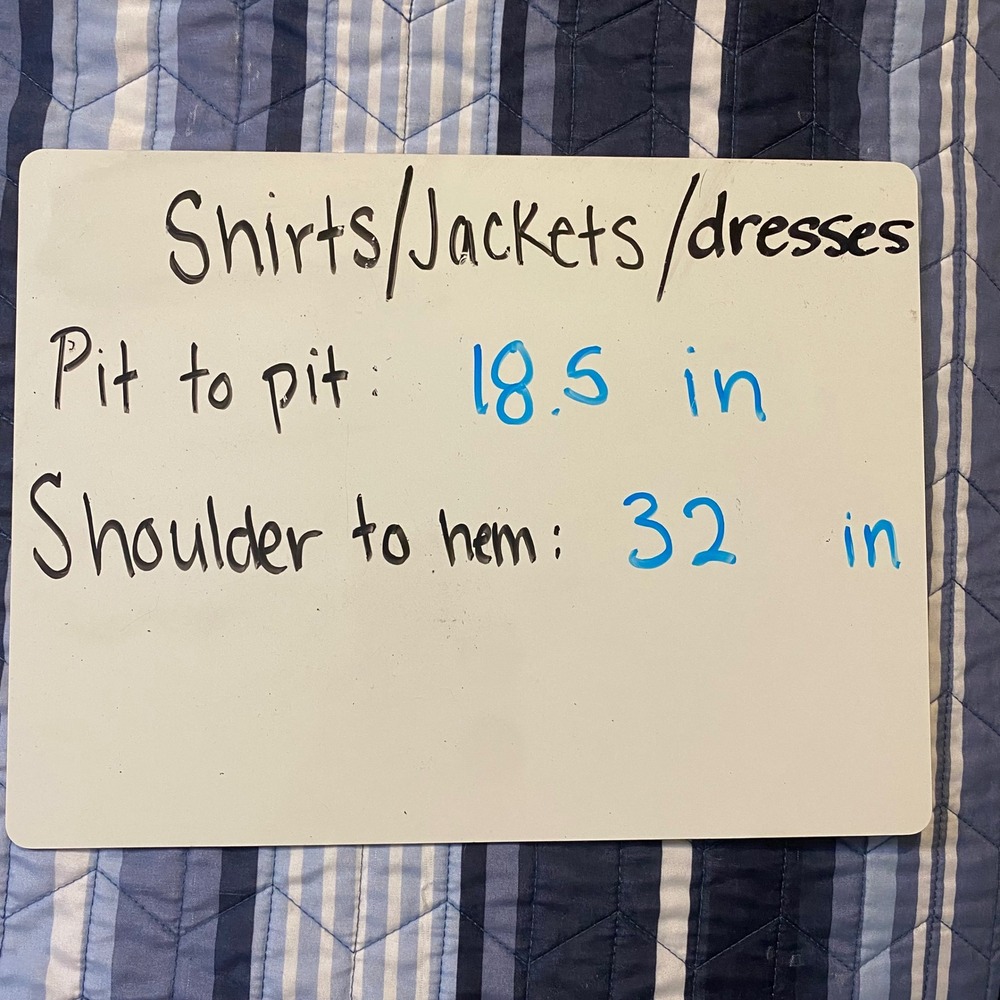 Shirts/Jackets/dresses
Pit to pit: 18.5 in
Shoulder to hem: 32 in